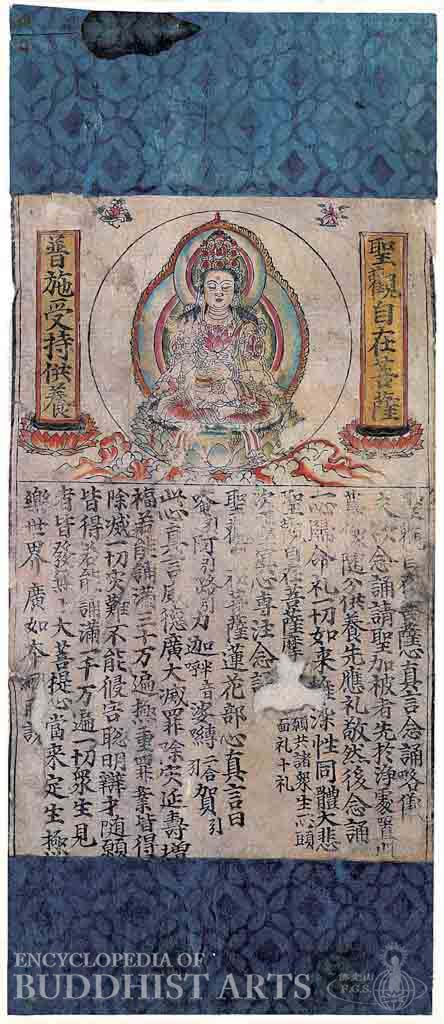 聖觀自在菩薩
普施受持供養
自在菩薩心真言念誦略儀
夫欲念誦請聖加被者先於淨處置此
隨分供養先應礼敬然後念誦
一心歸命礼一切如來離染性同體大悲
聖觀自在菩薩摩
共諸衆生一心頭
面礼十礼
心專注念誦
聖觀自在菩薩蓮花部心真言曰
唵引阿引路引力迦半音娑嚩二合引賀引
此心真言威德廣大滅罪除灾延壽增
福若能誦滿三千万遍極重罪業皆得
除滅一切灾難不能侵害聡明辯才随願
皆得若能誦滿一千万遍一切衆生見
者皆發無上大菩提心當来定生極
樂世界 廣如本經所說
ENCYCLOPEDIA OF
BUDDHIST ARTS
佛光山
F.G.S.